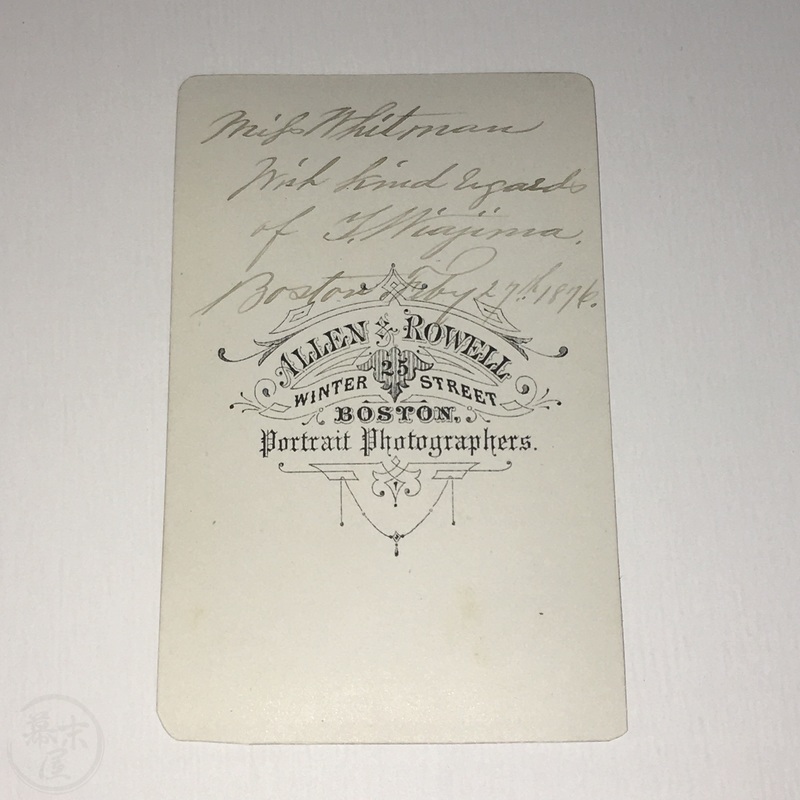 Miss Whitman
With kind regards
of T. Niujima.
Boston Feby 27th 1876.
ALLEN & ROWELL
25
WINTER STREET
BOSTON,
Portrait Photographers.
幕末屋